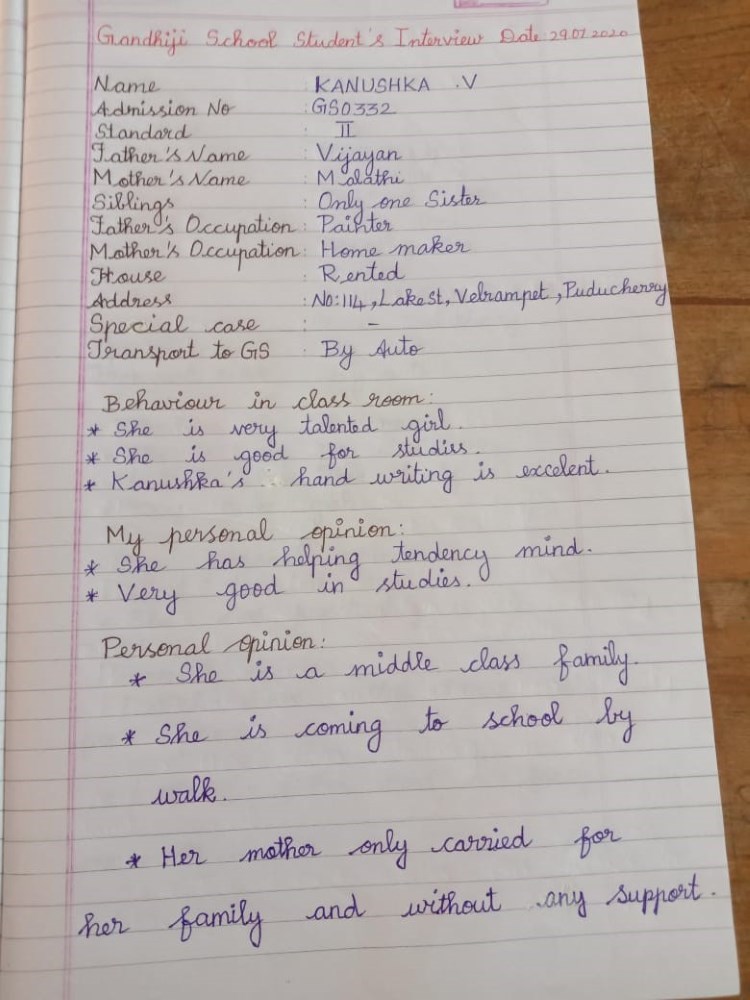 Gandhiji School Student's Interview Date 29.01.2020
Name : KANUSHKA .V
Admission No : GS0332
Standard : II
Father's Name : Vijayan
Mother's Name : Malathi
Siblings : Only one Sister
Father's Occupation : Painter
Mother's Occupation : Home maker
House : Rented
Address : No:114, Lake st, Velrampet, Puducherry
Special case : -
Transport to GS : By Auto
Behaviour in class room:
* She is very talented girl.
* She is good for studies.
* Kanushka's hand writing is excelent.
My personal opinion:
* She has helping tendency mind.
* Very good in studies.
Personal opinion:
* She is a middle class family.
* She is coming to school by
walk.
* Her mother only carried for
her family and without any support.